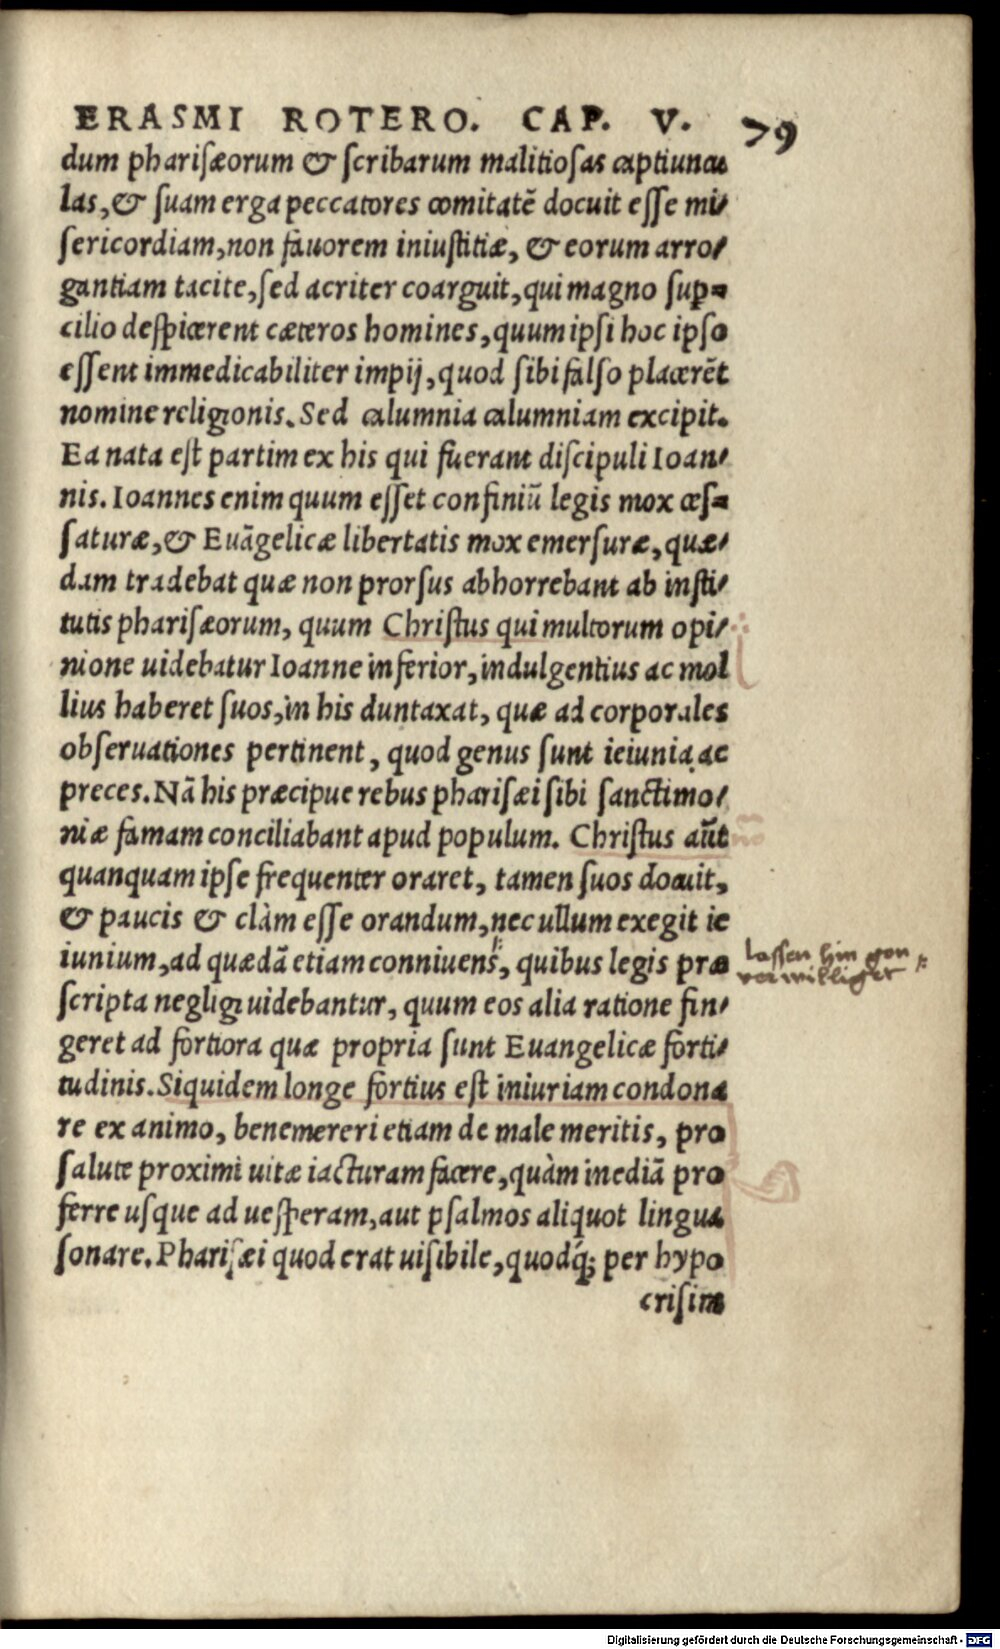 ERASMI ROTERO. CAP. V. 79
dum phariſæorum & ſcribarum malitioſas captiuncu
las, & ſuam erga peccatores comitatē docuit eſſe mi⸗
ſericordiam, non fauorem iniuſtitiæ, & eorum arro⸗
gantiam tacite, ſed acriter coarguit, qui magno ſup⸗
cilio deſpicerent cæteros homines, quum ipſi hoc ipſo
eſſent immedicabiliter impij, quod ſibi falſo placerēt
nomine religionis. Sed calumnia calumniam excipit.
Ea nata eſt partim ex his qui fuerant diſcipuli Ioan⸗
nis. Ioannes enim quum eſſet confiniū legis mox ceſ⸗
ſaturæ, & Euāgelicæ libertatis mox emerſuræ, quæ⸗
dam tradebat quæ non prorſus abhorrebant ab inſti⸗
tutis phariſæorum, quum Chriſtus qui multorum opi⸗
nione uidebatur Ioanne inferior, indulgentius ac mol
lius haberet ſuos, in his duntaxat, quæ ad corporales
obſeruationes pertinent, quod genus ſunt ieiunia ac
preces. Nā his præcipue rebus phariſæi ſibi ſanctimo⸗
niæ famam conciliabant apud populum. Chriſtus aūt
quanquam ipſe frequenter oraret, tamen ſuos docuit,
& paucis & clàm eſſe orandum, nec ullum exegit ie
iunium, ad quædā etiam conniuens, quibus legis præ
ſcripta negligi uidebantur, quum eos alia ratione fin⸗
geret ad fortiora quæ propria ſunt Euangelicæ forti⸗
tudinis. Siquidem longe fortius eſt iniuriam condona
re ex animo, benemereri etiam de male meritis, pro
ſalute proximi uitæ iacturam facere, quàm inediā pro
ferre uſque ad ueſperam, aut pſalmos aliquot lingua
ſonare. Phariſæi quod erat uiſibile, quodq́; per hypo
criſim
lassen hin gon
verwilliget
Digitalisierung gefördert durch die Deutsche Forschungsgemeinschaft - DFG